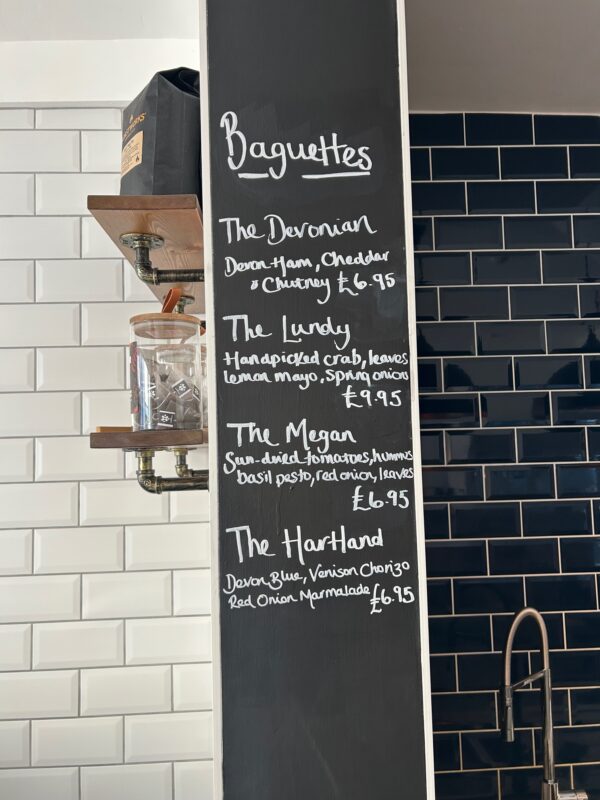 Baguettes
The Devonian
Devon Ham, Cheddar
& Chutney £6.95
The Lundy
Handpicked crab, leaves
lemon mayo, Spring onion
£9.95
The Megan
Sun-dried tomatoes, hummus
basil pesto, red onion, leaves
£6.95
The Hartland
Devon Blue, Venison Chorizo
Red Onion Marmalade £6.95